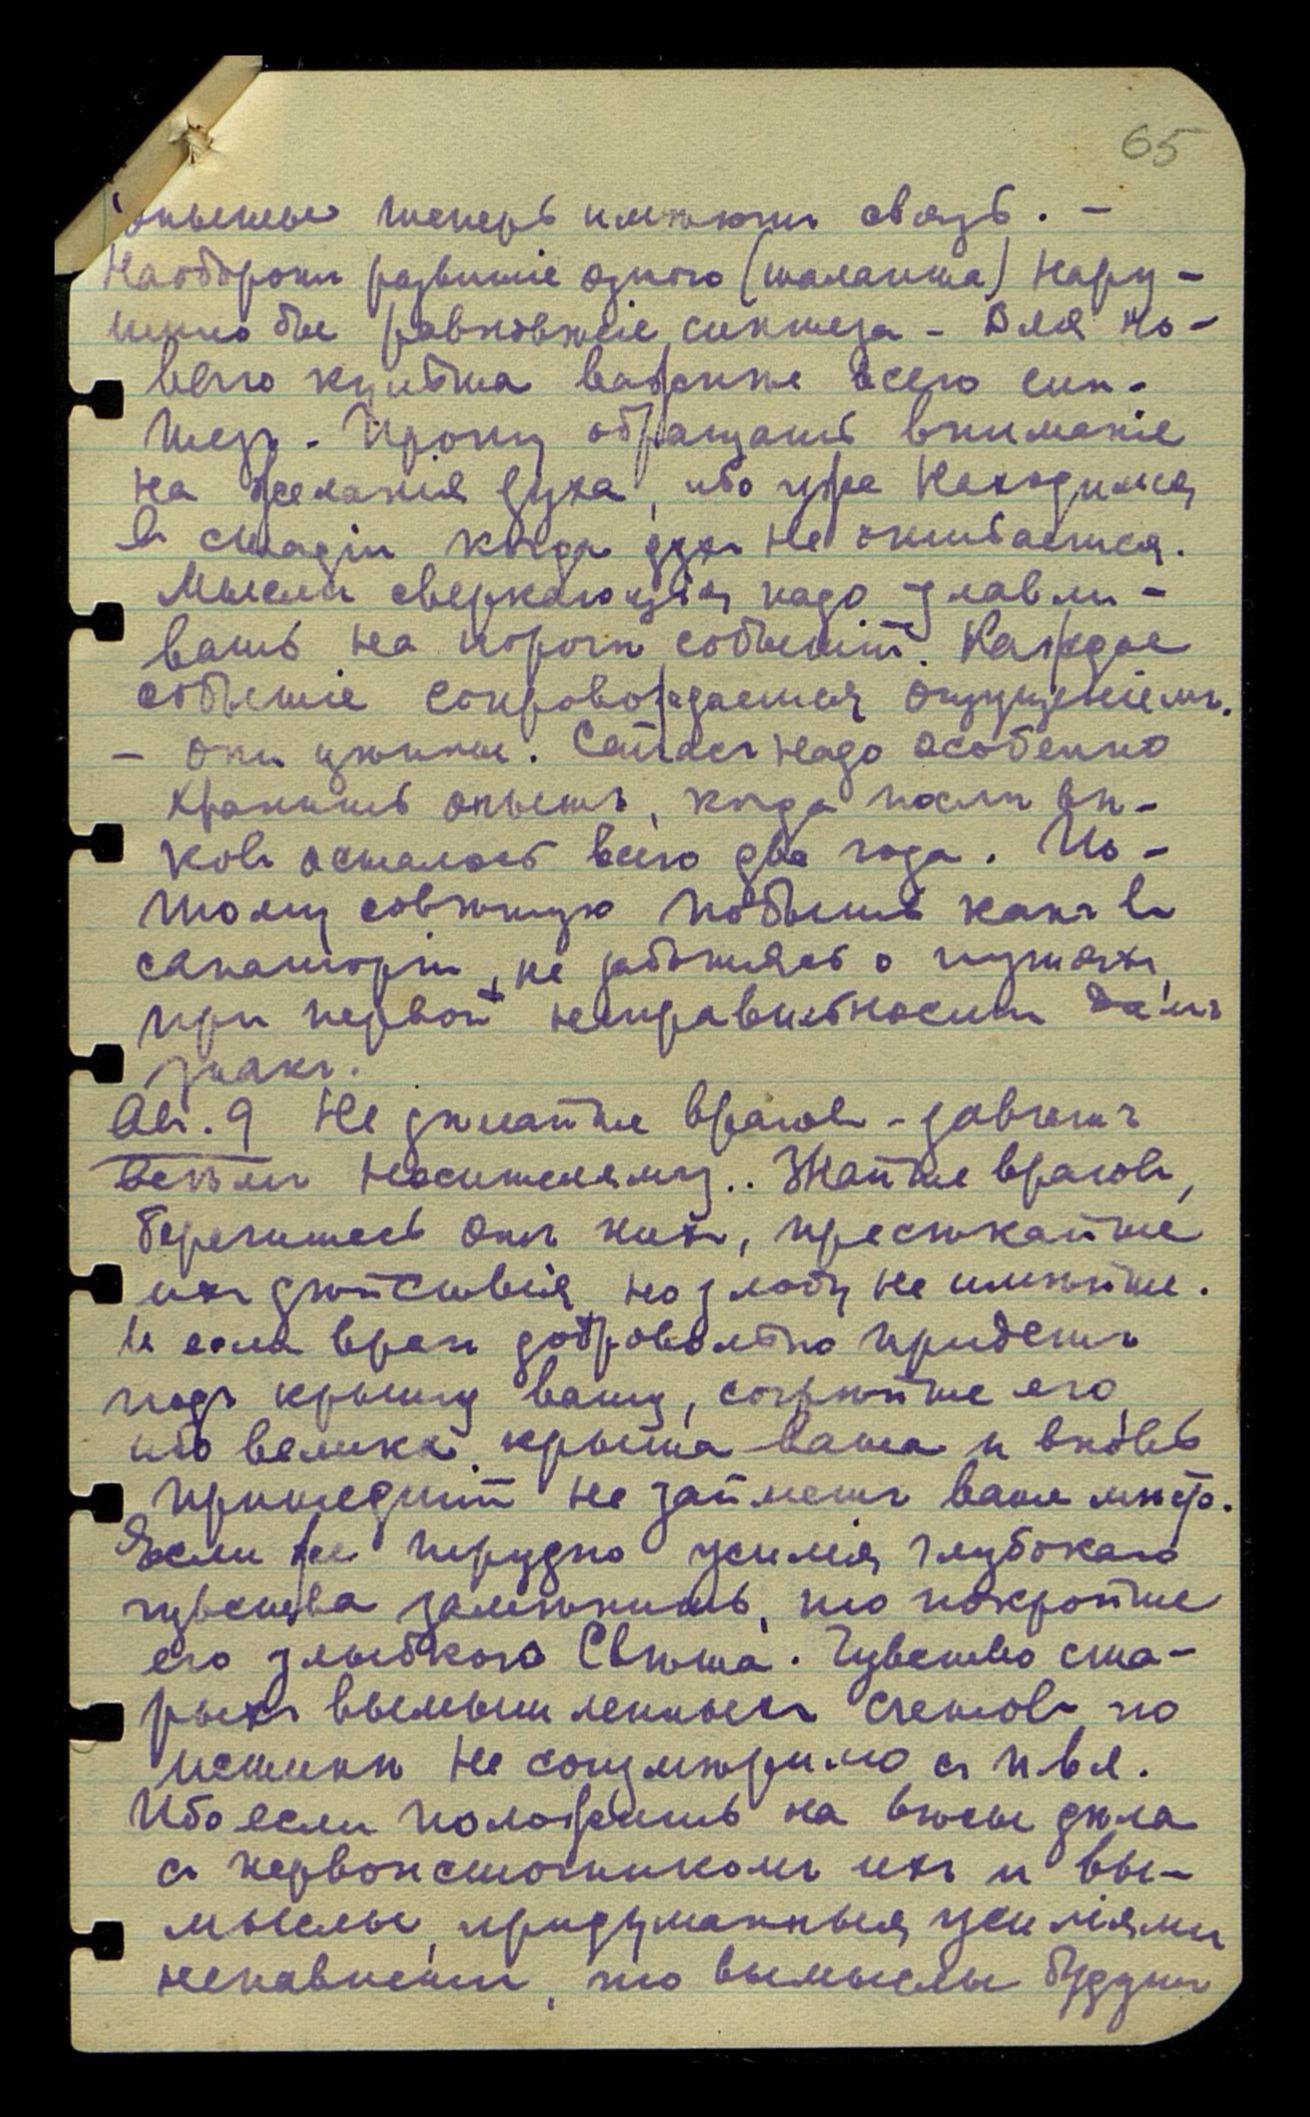 65
опыты теперь имѣютъ связь. –
Наоборотъ развитіе одного (таланта) нару-
шило бы равновѣсіе синтеза – Для но-
ваго культа важнѣе всего син-
тезъ. Прошу обращать вниманіе
на желанія духа, ибо уже находимся
въ стадіи когда духъ не ошибается.
Мысли сверкающія надо улавли-
вать на порогѣ событій. Каждое
событіе сопровождается ощущеніемъ.
– они цѣнны. Сейчасъ надо особенно
хранить опытъ, когда послѣ вѣ-
ковъ осталось всего два года. По-
тому совѣтую побыть какъ въ
санаторіи, не заботясь о путяхъ,
при первой неправильности дамъ
знакъ.
Авг. 9 Не дѣлайте враговъ – завѣтъ
всѣмъ носителямъ.. Знайте враговъ,
берегитесь отъ нихъ, пресѣкайте
ихъ дѣйствія но злобу не имѣйте.
И если врагъ добровольно придетъ
подъ крышу вашу, согрѣйте его,
ибо велика крыша ваша и вновь
пришедшій не займетъ ваше мѣсто.
Если же трудно усилія глубокаго
чувства замѣнить, то покройте
его улыбкою Свѣта. Чувство ста-
рыхъ вымышленныхъ счетовъ по
истинѣ не соизмѣримо съ
Ибо если положить на вѣсы дѣла
съ первоисточникомъ ихъ и вы-
мыслы, придуманныя усиліями
ненависти, то вымыслы будутъ